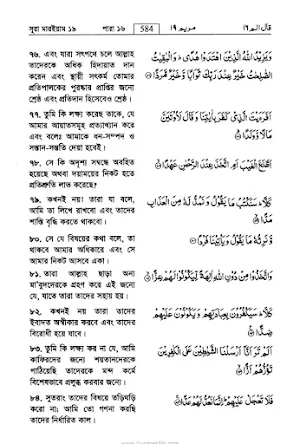 সুরা মারইয়াম ১৯ পারা ১৬ 584 مريم ١٩ قال الم ١٦
৭৬. এবং যারা সৎপথে চলে আল্লাহ
তাদেরকে অধিক হিদায়াত দান
করেন এবং স্থায়ী সৎকর্ম তোমার
প্রতিপালকের পুরস্কার প্রাপ্তির জন্যে
শ্রেষ্ঠ এবং প্রতিদান হিসেবেও শ্রেষ্ঠ।
وَيَزِيدُ اللّٰهُ الَّذِينَ اهْتَدَوْا هُدًى ۗ وَالْبٰقِيٰتُ
الصّٰلِحٰتُ خَيْرٌ عِنْدَ رَبِّكَ ثَوَابًا وَّخَيْرٌ مَّرَدًّا ۝
৭৭. তুমি কি লক্ষ্য করেছ তাকে, যে
আমার আয়াতসমূহ প্রত্যাখ্যান করে
এবং বলেঃ আমাকে ধন-সম্পদ ও
সন্তান-সন্ততি দেয়া হবেই।
اَفَرَءَيْتَ الَّذِيْ كَفَرَ بِاٰيٰتِنَا وَقَالَ لَاُوْتَيَنَّ
مَالًا وَّوَلَدًا ۝
৭৮. সে কি অদৃশ্য সম্বন্ধে অবহিত
হয়েছে অথবা দয়াময়ের নিকট হতে
প্রতিশ্রুতি লাভ করেছে?
اَطَّلَعَ الْغَيْبَ اَمِ اتَّخَذَ عِنْدَ الرَّحْمٰنِ عَهْدًا ۝
৭৯. কখনই নয়! তারা যা বলে,
আমি তা লিখে রাখবো এবং তাদের
শাস্তি বৃদ্ধি করতে থাকবো।
كَلَّا ۚ سَنَكْتُبُ مَا يَقُوْلُ وَنَمُدُّ لَهٗ مِنَ الْعَذَابِ
مَدًّا ۝
৮০. সে যে বিষয়ের কথা বলে, তা
থাকবে আমার অধিকারে এবং সে
আমার নিকট আসবে একা।
وَّنَرِثُهٗ مَا يَقُوْلُ وَيَأْتِيْنَا فَرْدًا ۝
৮১. তারা আল্লাহ ছাড়া অন্য
মা'বূদদেরকে গ্রহণ করে এই জন্যে
যে, যাতে তারা তাদের সহায় হয়।
وَاتَّخَذُوْا مِنْ دُوْنِ اللّٰهِ اٰلِهَةً لِّيَكُوْنُوْا لَهُمْ عِزًّا ۝
৮২. কখনই নয় তারা তাদের
ইবাদত অস্বীকার করবে এবং তাদের
বিরোধী হয়ে যাবে।
كَلَّا ۚ سَيَكْفُرُوْنَ بِعِبَادَتِهِمْ وَيَكُوْنُوْنَ عَلَيْهِمْ
ضِدًّا ۝
৮৩. তুমি কি লক্ষ্য কর না যে, আমি
কাফিরদের জন্যে শয়তানদেরকে
পাঠিয়েছি তাদেরকে মন্দ কর্মে
বিশেষভাবে প্রলুব্ধ করবার জন্যে।
اَلَمْ تَرَ اَنَّآ اَرْسَلْنَا الشَّيٰطِيْنَ عَلَى الْكٰفِرِيْنَ
تَؤُزُّهُمْ اَزًّا ۝
৮৪. সুতরাং তাদের বিষয়ে তড়িঘড়ি
করো না; আমি তো গণনা করছি
তাদের নির্ধারিত কাল।
فَلَا تَعْجَلْ عَلَيْهِمْ ۗ اِنَّمَا نَعُدُّ لَهُمْ عَدًّا ۝